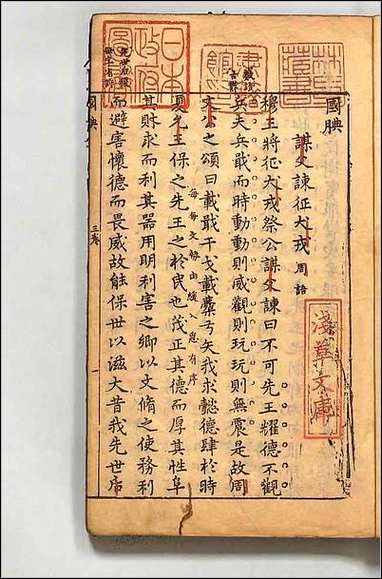 林氏藏書
日本政府圖書
國腆
謀父諫征犬戎 周語
淺草文庫
穆王將征犬戎祭公謀父諫曰不可先王耀德不觀
兵夫兵戢而時動動則威觀則玩玩則無震是故周
文公之頌曰載戢干戈載櫜弓矢我求懿德肆於時
夏允王保之先王之於民也茂正其德而厚其性阜
其財求而利其器用明利害之鄉以文脩之使務利
而避害懷德而畏威故能保世以滋大昔我先世后
國腆
三卷
一